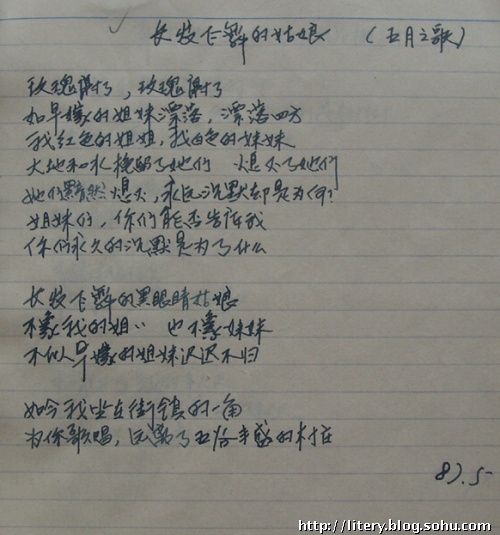 长发飞舞的姑娘 （五月之歌）
玫瑰谢了，玫瑰谢了
如早嫁的姐妹漂落，漂落四方
我红色的姐姐，我白色的妹妹
大地和水挽留了她们 熄灭了她们
她们黯然熄灭，永远沉默却是为何？
姐妹们，你们能否告诉我
你们永久的沉默是为了什么
长发飞舞的黑眼睛姑娘
不象我的姐〃 也不象妹妹
不似早嫁的姐妹迟迟不归
如今我坐在街镇的一角
为你歌唱，远离了五谷丰盛的村庄
87.5
http://litery.blog.sohu.com